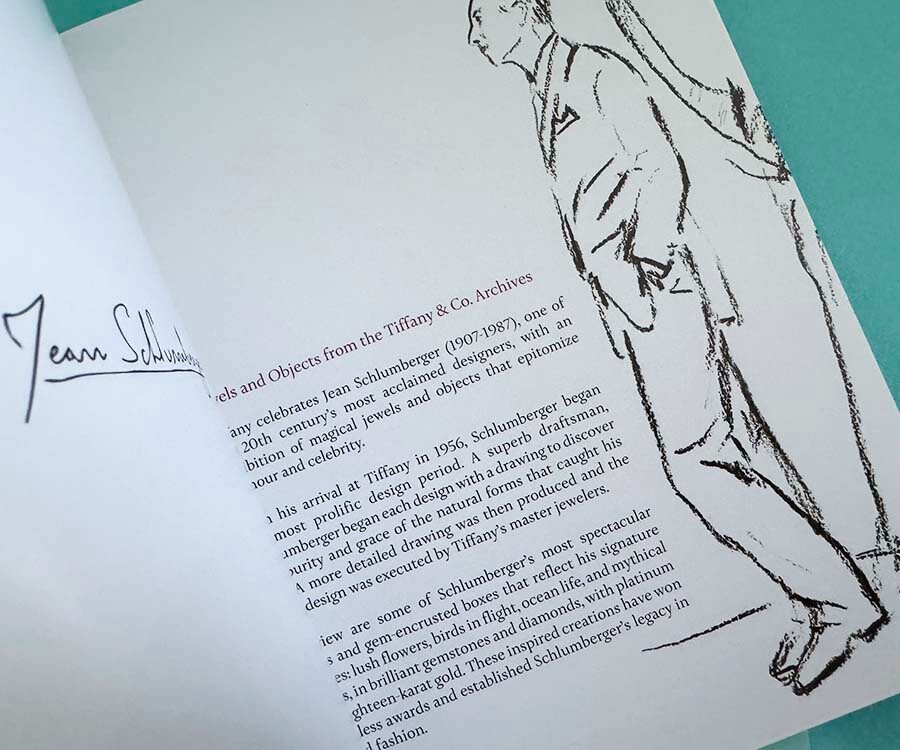 Jean Schlumb
vels and Objects from the Tiffany & Co. Archives
any celebrates Jean Schlumberger (1907-1987), one of
20th century's most acclaimed designers, with an
bition of magical jewels and objects that epitomize
our and celebrity.
his arrival at Tiffany in 1956, Schlumberger began
most prolific design period. A superb draftsman,
umberger began each design with a drawing to discover
purity and grace of the natural forms that caught his
A more detailed drawing was then produced and the
design was executed by Tiffany's master jewelers.
iew are some of Schlumberger's most spectacular
s and gem-encrusted boxes that reflect his signature
es: lush flowers, birds in flight, ocean life, and mythical
s, in brilliant gemstones and diamonds, with platinum
ghteen-karat gold. These inspired creations have won
less awards and established Schlumberger's legacy in
d fashion.